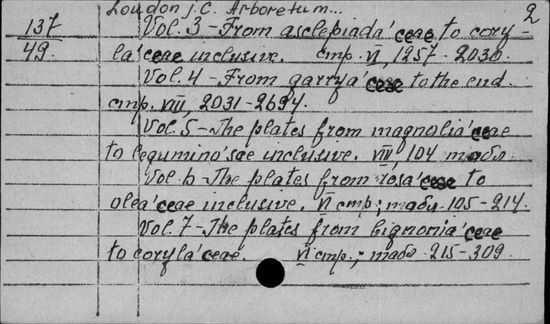 Loudon J.C. Arboretum... 2
137
49.
Vol. 3 - From asclepiada'ceae to cory-
la'ceae inclusive. стр. VI, 1257-2030.
Vol. 4 - From garrya'ceae to the end.
стр. VIII, 2031-2694.
Vol. 5 - The plates from magnolia'ceae
to legumino'sae inclusive. VIII, 104 табл.
Vol. 6 - The plates from rosa'ceae to
olea'ceae inclusive. VI стр; табл. 105-214.
Vol. 7 - The plates from bignonia'ceae
to coryla'ceae. VI стр.; табл. 215-309.